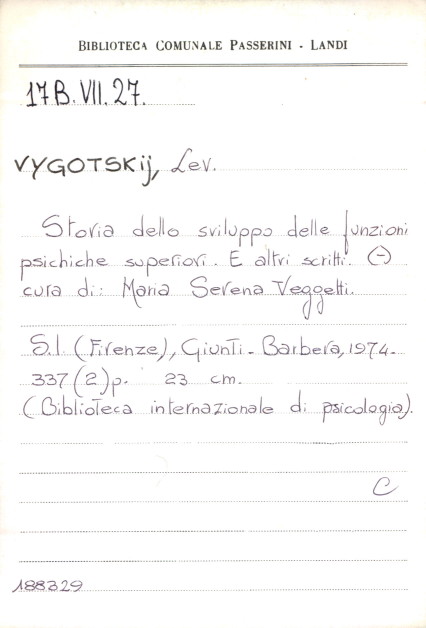 BIBLIOTECA COMUNALE PASSERINI - LANDI
17B.VII.27.
VYGOTSKij, Lev.
Storia dello sviluppo delle funzioni
psichiche superiori. E altri scritti. (-)
cura di: Maria Serena Veggetti.
S.l. (Firenze), Giunti - Barbera, 1974.
337(2)p. 23 cm.
(Biblioteca internazionale di psicologia).
C
188329